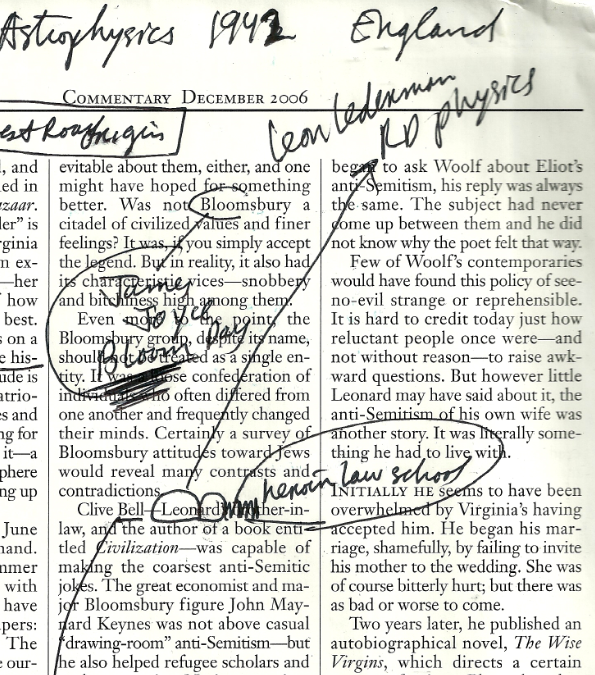 Astrophysics 1942 England
COMMENTARY DECEMBER 2006
Leon Lederman
RD physics
, and
ed in
azaar.
er" is
rginia
n ex-
—her
how
best.
s on a
e his-
ude is
atrio-
es and
ng for
it—a
phere
ng up
June
hand.
nmer
with
have
pers:
The
e our-
evitable about them, either, and one
might have hoped for something
better. Was not Bloomsbury a
citadel of civilized values and finer
feelings? It was, if you simply accept
the legend. But in reality, it also had
its characteristic vices—snobbery
and bitchiness high among them.
Even more to the point, the
Bloomsbury group, despite its name,
should not be treated as a single en-
tity. It was a loose confederation of
individuals who often differed from
one another and frequently changed
their minds. Certainly a survey of
Bloomsbury attitudes toward Jews
would reveal many contrasts and
contradictions.
Clive Bell—Leonard's brother-in-
law, and the author of a book enti-
tled Civilization—was capable of
making the coarsest anti-Semitic
jokes. The great economist and ma-
jor Bloomsbury figure John May-
nard Keynes was not above casual
"drawing-room" anti-Semitism—but
he also helped refugee scholars and
James
Joyce
Bloom Day
began to ask Woolf about Eliot's
anti-Semitism, his reply was always
the same. The subject had never
come up between them and he did
not know why the poet felt that way.
Few of Woolf's contemporaries
would have found this policy of see-
no-evil strange or reprehensible.
It is hard to credit today just how
reluctant people once were—and
not without reason—to raise awk-
ward questions. But however little
Leonard may have said about it, the
anti-Semitism of his own wife was
another story. It was literally some-
thing he had to live with.
law school
INITIALLY HE seems to have been
overwhelmed by Virginia's having
accepted him. He began his mar-
riage, shamefully, by failing to invite
his mother to the wedding. She was
of course bitterly hurt; but there was
as bad or worse to come.
Two years later, he published an
autobiographical novel, The Wise
Virgins, which directs a certain